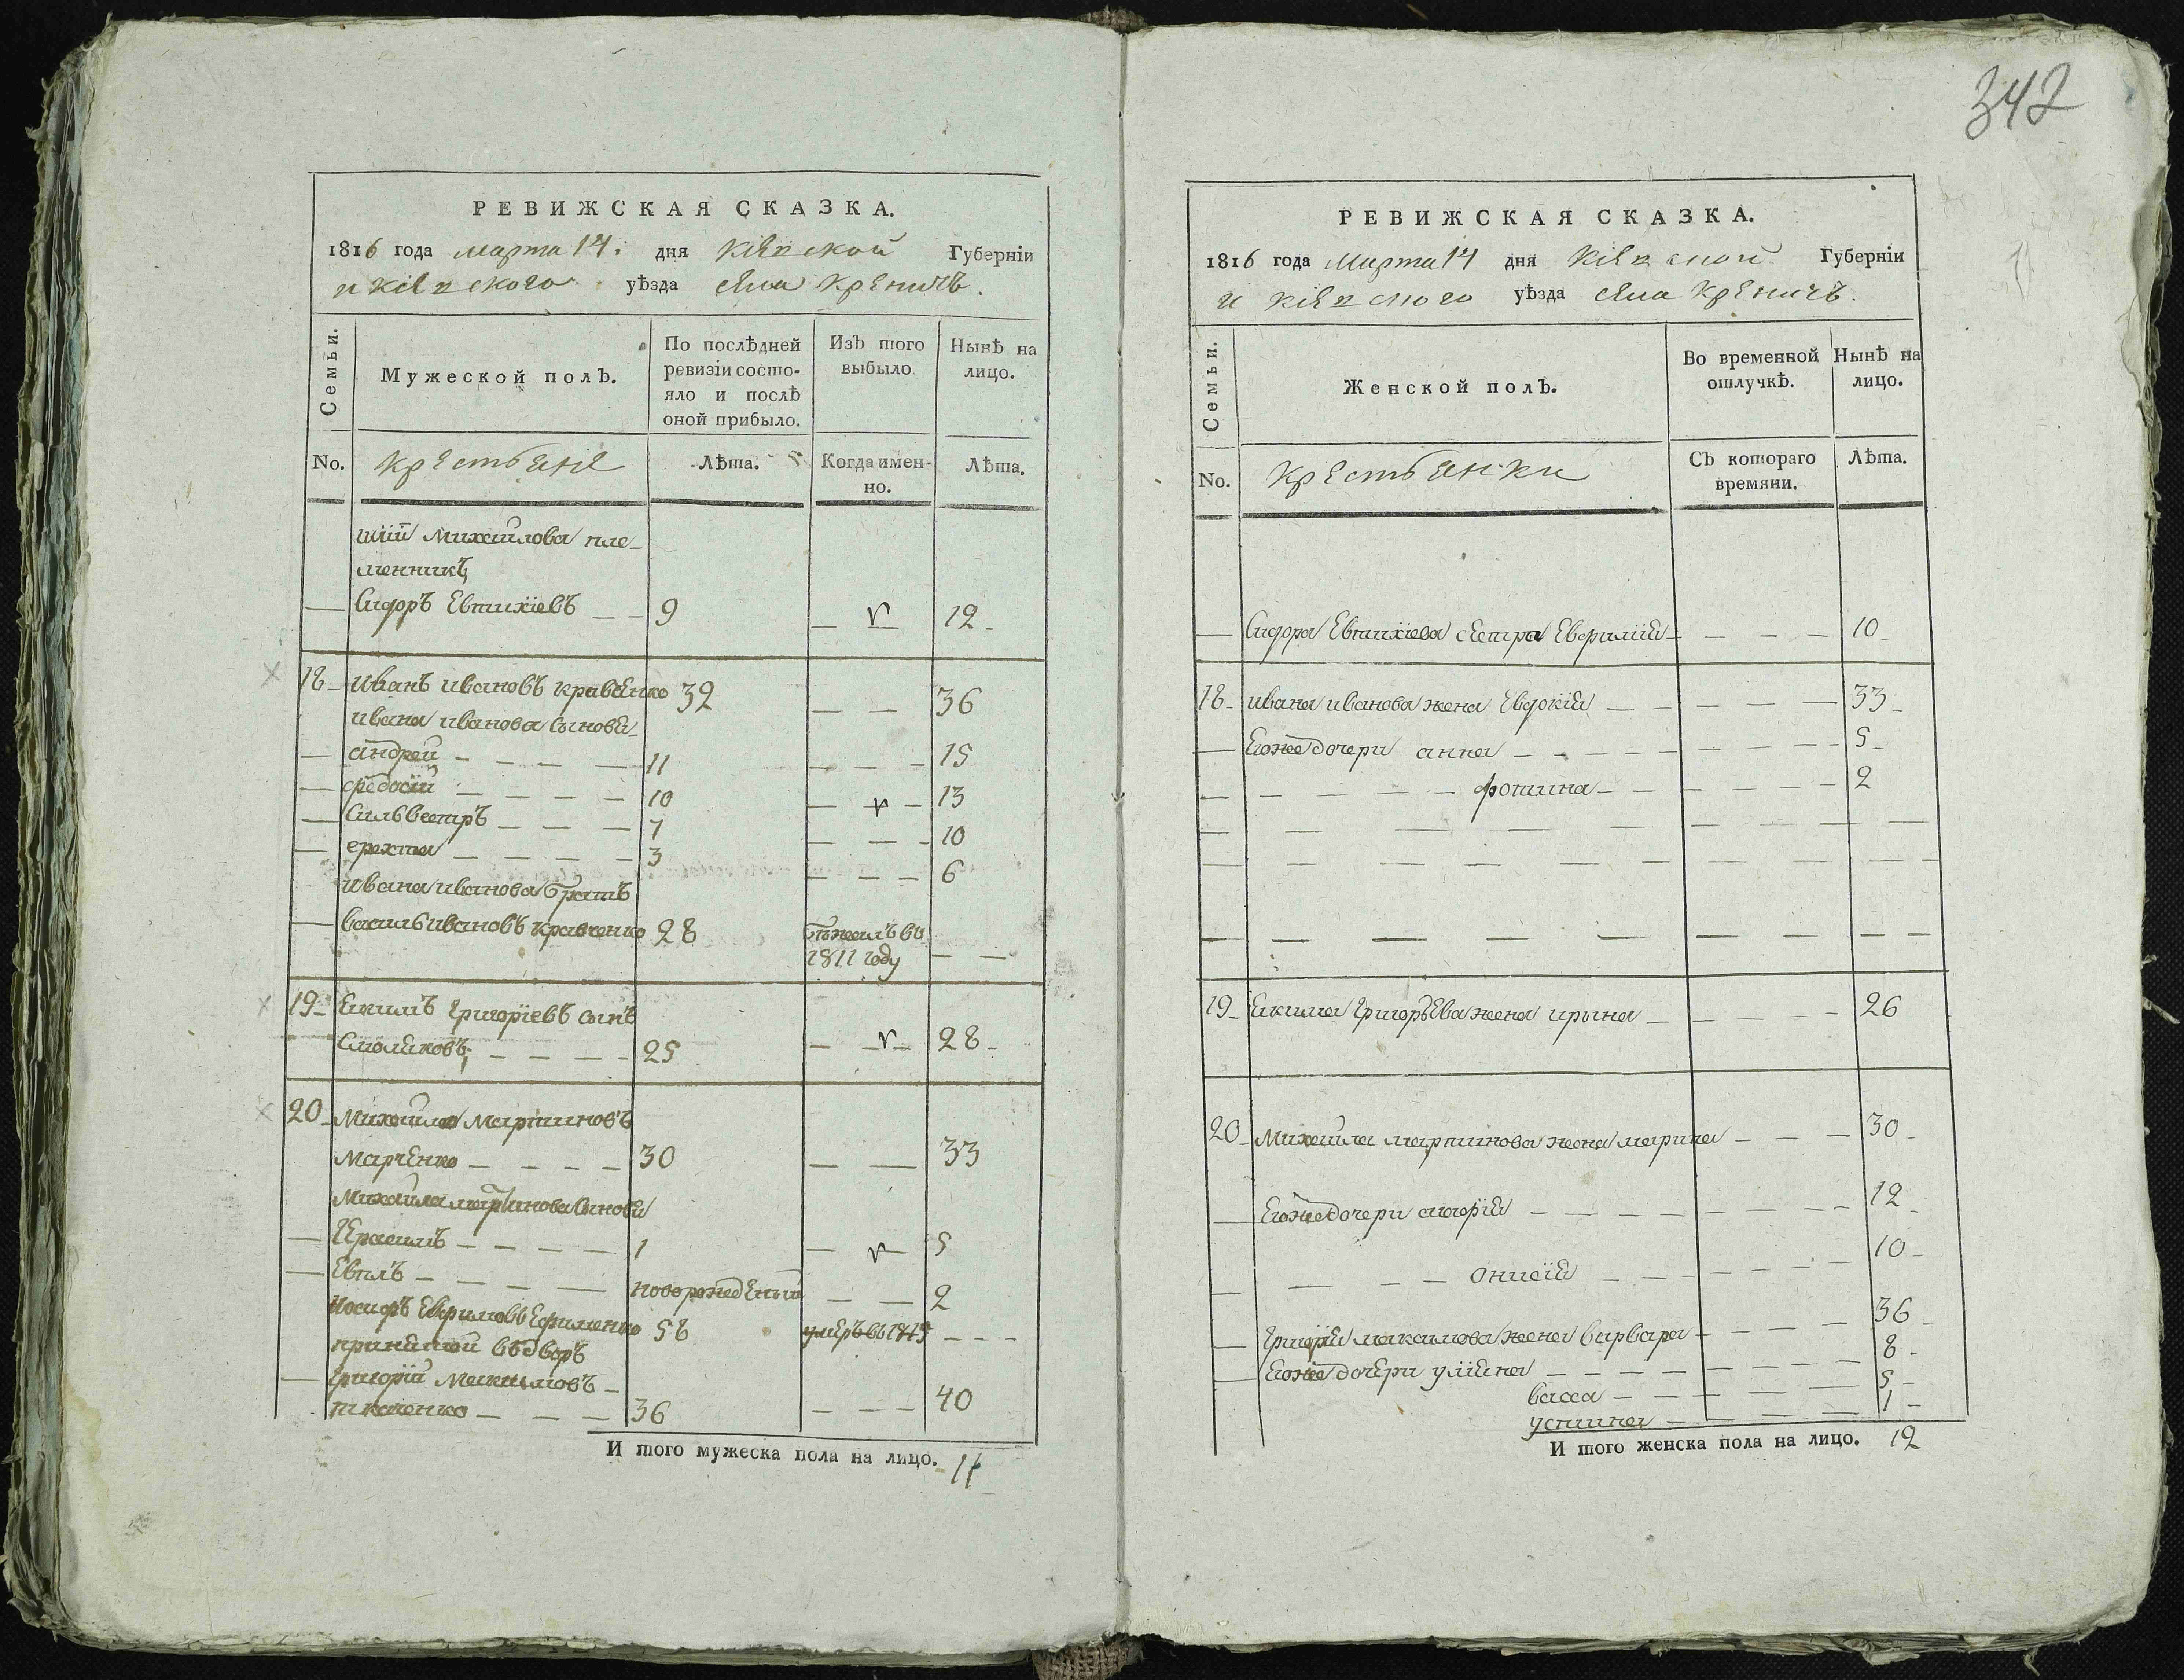 342
РЕВИЖСКАЯ СКАЗКА.
1816 года марта 14: дня Кіевской Губерніи
и Кіевского уѣзда села Креничъ.
Семьи.
Мужеской полъ.
По послѣдней ревизіи состо-
яло и послѣ
оной прибыло.
Изъ того
выбыло
Нынѣ на
лицо.
No.
крестьяне
Лѣта.
Когда имен-
но.
Лѣта.
Михайлова пле-
менникъ
Сидоръ Евтихіевъ 9 12
18 иванъ ивановъ кравченко 32 36
ивана иванова сыновя
андрей 11 15
феодосій 10 13
Сильвестръ 7 10
ерема 3 6
ивана иванова братъ
василь ивановъ кравченко 28 бѣжалъ въ
1811 году
19 Екимъ Григоріевъ сынъ
Смоляковъ 25 28
20 Михайло Мартиновъ
Марченко 30 33
Михайла мартинова сыновя
Герасимъ 1 5
Евплъ новорожденый 2
Иосифъ Ефримовъ Ефименко 58 умеръ въ 1815
принятой въ дворъ
григорій Максимовъ
ткаченко 36 40
И того мужеска пола на лицо. 11
РЕВИЖСКАЯ СКАЗКА.
1816 года Марта 14 дня Кіевской Губерніи
и Кіевского уѣзда села Креничъ.
Семьи.
Женской полъ.
Во временной
отлучкѣ.
Нынѣ на
лицо.
No.
Крестьянки
Съ котораго
времяни.
Лѣта.
Сидора Евтихіева сестра Евфимія 10
18 ивана иванова жена Евдокія 33
Егоже дочери анна 5
фотина 2
19 Екима Григорьева жена ирына 26
20 Михайла мартинова жена марина 30
Егоже дочери агафія 12
онисія 10
Григорія максимова жена варвара 36
Егоже дочери уліяна 8
васса 5
устина 1
И того женска пола на лицо. 12